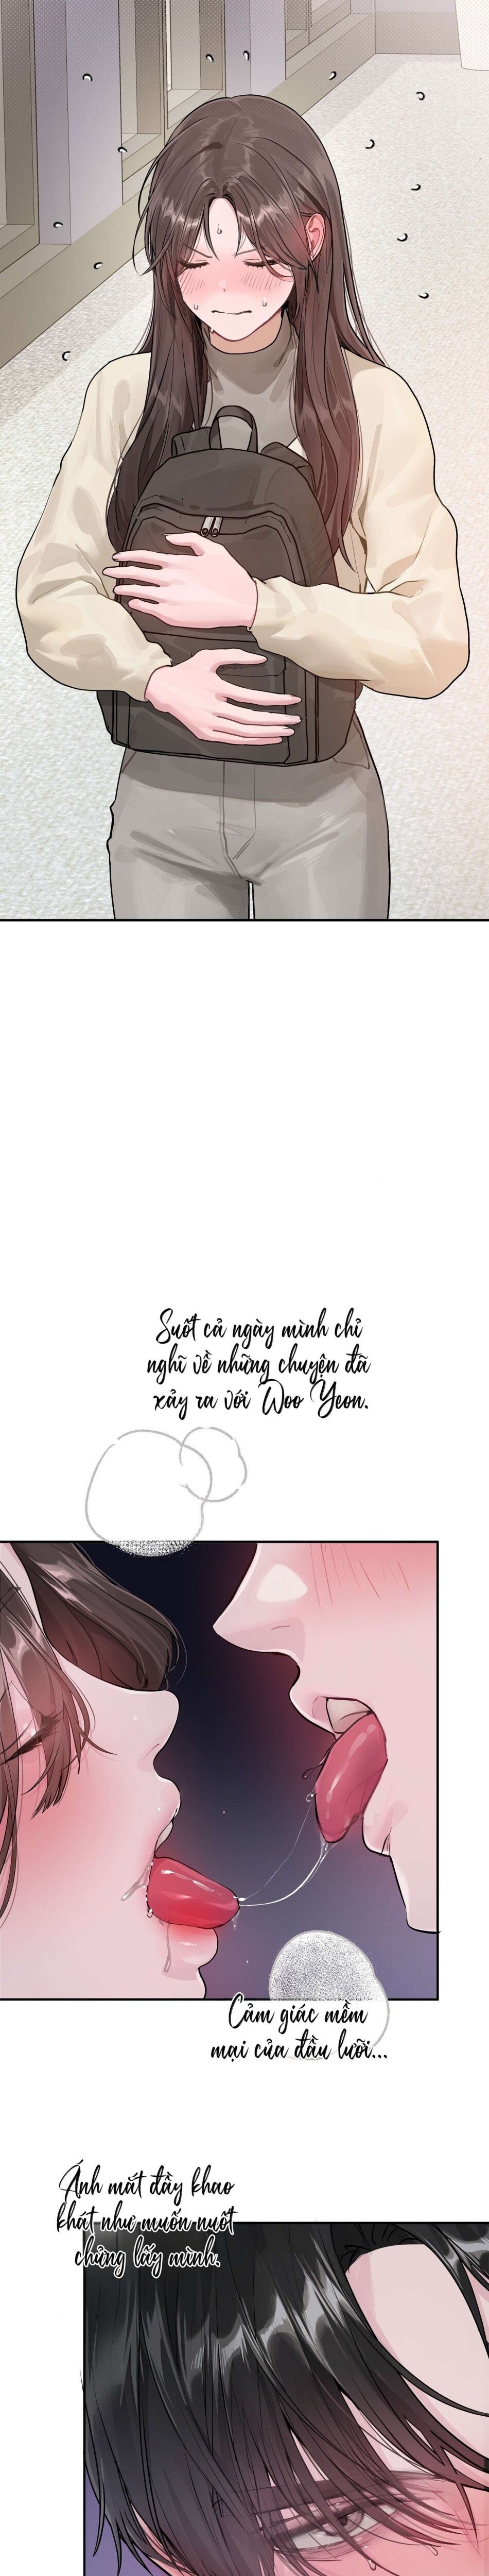 Suốt cả ngày mình chỉ
nghĩ về những chuyện đã
xảy ra với Woo Yeon.
Cảm giác mềm
mại của đầu lưỡi...
Ánh mắt đầy khao
khát như muốn nuốt
chửng lấy mình.